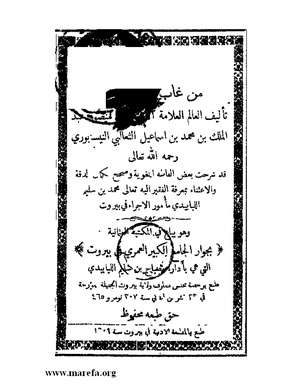 من غاب
تأليف العالم العلامة
الملك بن محمد بن اسماعيل الثعالبي النيسابوري
رحمه الله تعالى
قد شرحت بعض الفاظه اللغوية وصحح بكمال الدقة
والاعتناء بمعرفة الفقير اليه تعالى محمد بن سليم
اللبابيدي مأمور الاجراء في بيروت
وهو يباع في المكتبة العثمانية
بجوار الجامع الكبير العمري في بيروت
التي هي بادارة مصباح بن سليم اللبابيدي
طبع برخصة مجلس معارف ولاية بيروت الجليلة مؤرخة
في ٢٣ تشرين ٢ في سنة ٣٠٧ نومرو ٤٦٥
حق طبعه محفوظ
طبع بالمطبعة الادبية في بيروت سنة ١٣٠٩
www.marefa.org